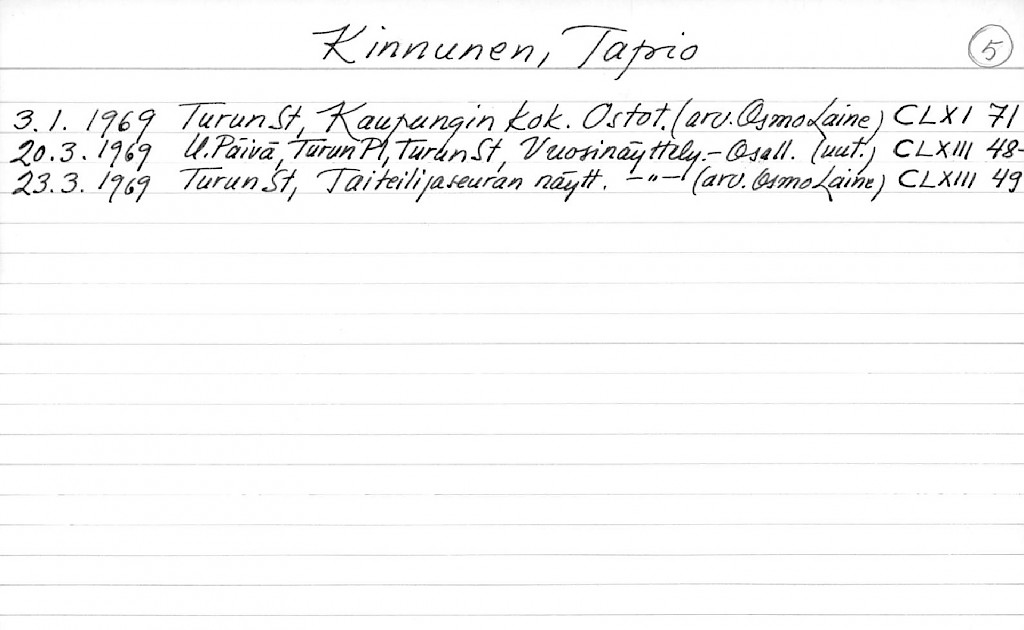 Kinnunen, Tapio 5
3.1. 1969 Turun St, Kaupungin kok. Ostot. (arv. Osmo Laine) CLXI 71
20.3. 1969 U. Päivä, Turun Pl, Turun St, Vuosinäyttely. - Osall. (uut.) CLXIII 48-
23.3. 1969 Turun St, Taiteilijaseuran näytt. -"- (arv. Osmo Laine) CLXIII 49